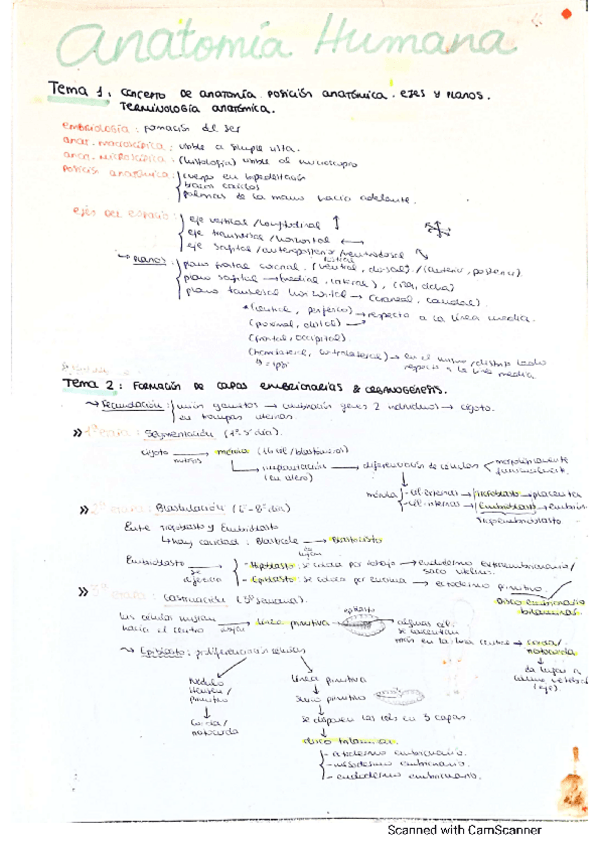 Anatomía Humana
Tema 1. CONCEPTO DE ANATOMÍA. POSICIÓN ANATÓMICA. EJES Y PLANOS.
TERMINOLOGÍA ANATÓMICA.
embriología: formación del ser
anat. macroscópica: visible a simple vista.
anat. microscópica: (histología) visible al microscopio
posición anatómica: cuerpo en bipedestación
brazos caídos
palmas de la mano hacia adelante.
ejes del espacio: eje vertical/longitudinal ↑
eje transversal/horizontal ←
eje sagital/anteroposterior/ventrodorsal
→ Planos: plano frontal coronal. (ventral, dorsal) / (anterior, posterior)
plano sagital → (medial, lateral), (izq, dcha)
plano transversal horizontal → (craneal, caudal).
(central, periférico) → respecto a la línea media.
(proximal, distal) →
(frontal, occipital)
(homolateral, contralateral) → en el mismo/distinto lado
respecto a la línea media.
Tema 2: FORMACIÓN DE CAPAS EMBRIONARIAS & ORGANOGÉNESIS.
→ Fecundación: unión gametos → combinación genes 2 individuos → cigoto.
en trompas uterinas.
» 1ª etapa: Segmentación
cigoto → mitosis → mórula
implantación (en útero) → diferenciación de células
mórula - cél. externas → trofoblasto → placenta
- cél. internas → Embrioblasto → embrión
» Blastulación
Entre trofoblasto y Embrioblasto
↳ hay cavidad: Blastocele → Blastocisto
Embrioblasto se - Hipoblasto: se coloca por debajo → endodermo extraembrionario/
saco vitelino.
- Epiblasto: se coloca por encima → ectodermo primitivo.
Disco embrionario
bilaminar.
» Gastrulación (3ª semana).
Las células migran
hacia el centro → línea primitiva → algunas cél.
se
más en la línea central → Corda/
notocorda
da lugar a
columna vertebral
(eje).
→ Epiblasto: proliferación células
Nódulo
Hensen/
primitivo
↓
Corda/
notocorda
línea primitiva
↓
Surco primitivo
↓
se disponen las céls en 3 capas
↓
disco trilaminar.
- ectodermo embrionario.
- mesodermo embrionario.
- endodermo embrionario.
Scanned with CamScanner